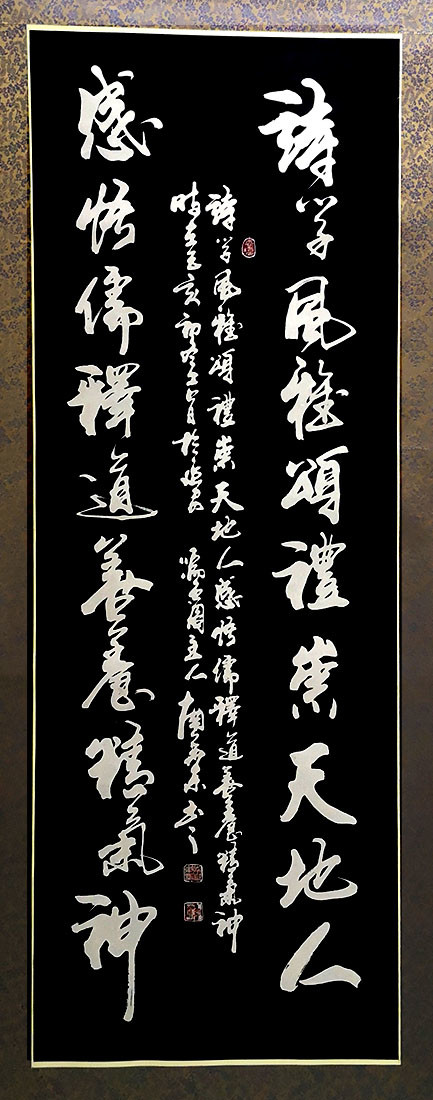 詩學風雅頌禮崇天地人
詩學風雅頌禮崇天地人感悟儒釋道善養精氣神
時在己亥初冬 月於 主人 書
感悟儒釋道善養精氣神